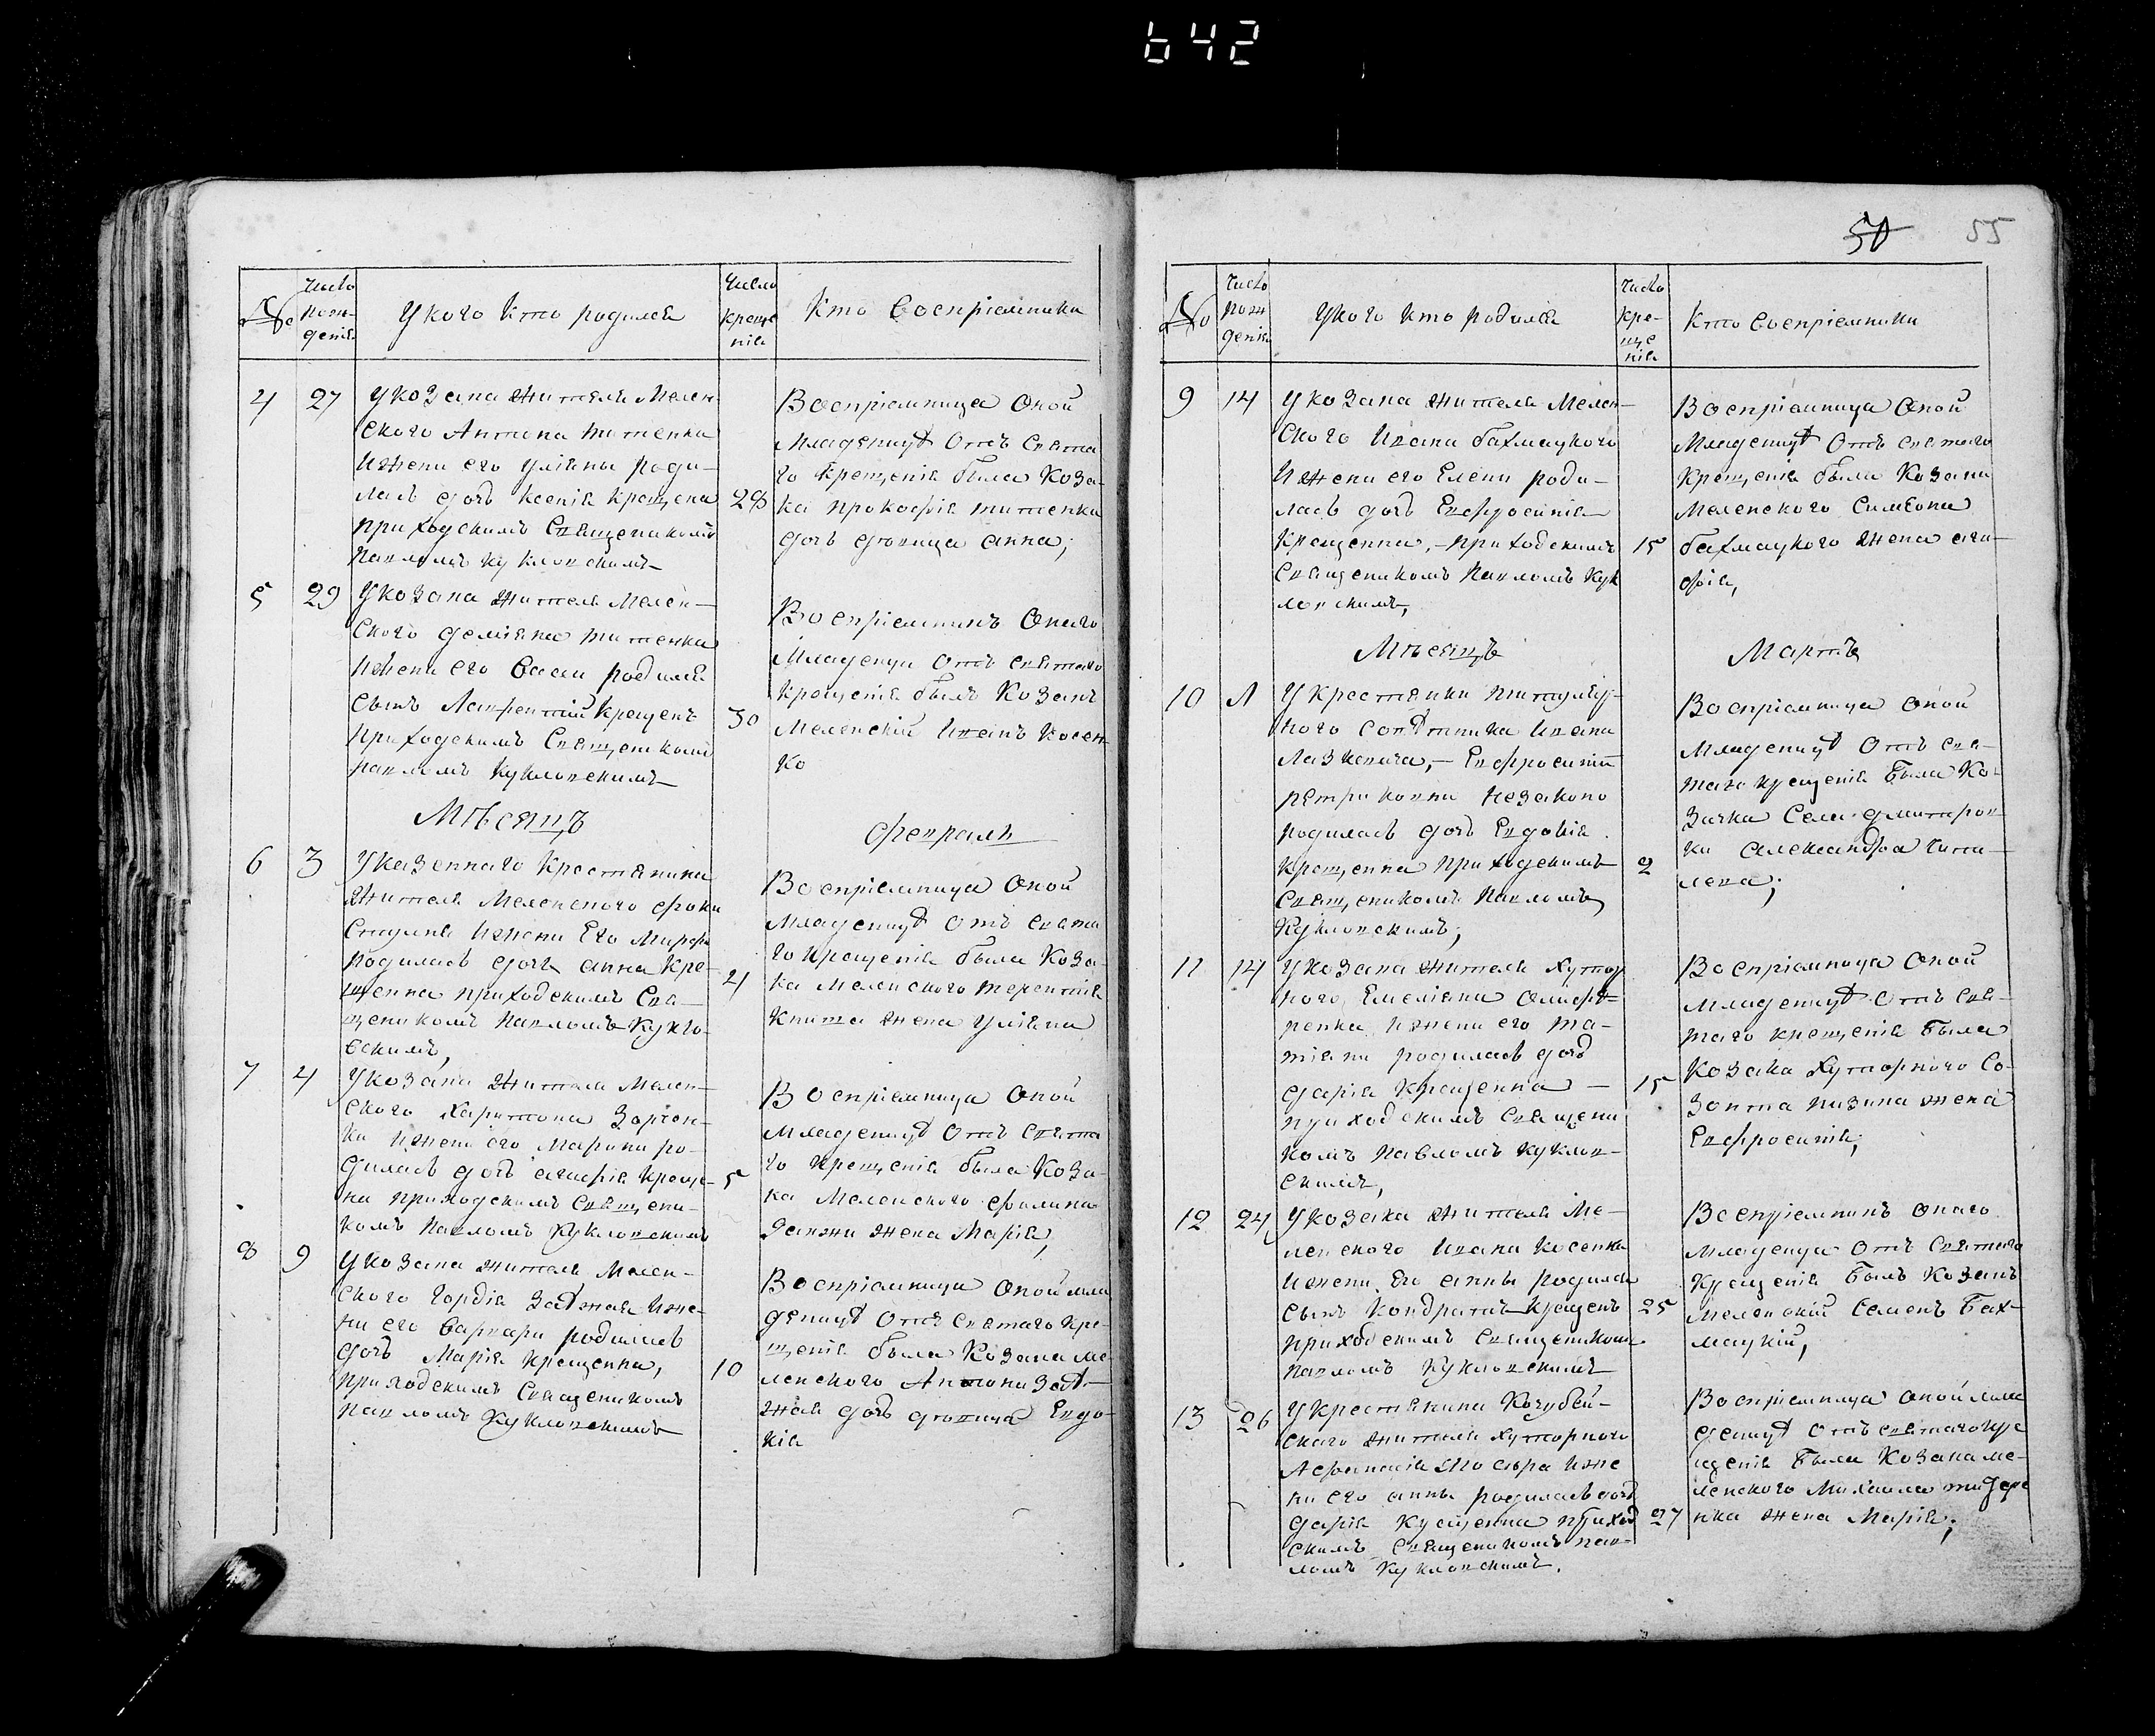 642
50 55
№
Число рож-
денія
У кого кто родился
Число
креще
нія
Кто воспріемники
4 27
У козака жителя Мелен-
ского Антона Титенка
и жени его Уліяны роди-
лась дочь Ксенія крещена
приходскимъ Священикомъ
Павломъ Кукловскимъ
28
Воспріемница оной
младеницѣ отъ свята
го крещенія была коза-
ка Прокофія Титенка
дочь дѣвица Анна;
5 29
У козака жителя Мелен-
ского Деміяна Титенка
и жени его Васси родился
сынъ Лаврентій крещенъ
приходскимъ Священикомъ
Павломъ Кукловскимъ
30
Воспріемникъ онаго
младенца отъ святаго
крещенія былъ козакъ
Меленскій Иванъ Косен-
ко
Мѣсяцъ
Февраль
6 3
У казеннаго крестянина
жителя Меленского Фоки
и жени его Марфы
родилась дочь Анна кре-
щенна приходскимъ Свя-
щеникомъ Павломъ Кукло-
вскимъ,
4
Воспріемница оной
младеницѣ отъ свята
го крещенія была коза-
ка Меленского Терентія
Книша жена Уліяна
7 4
У козака жителя Мелен-
ского Харитона Зорчен-
ка и жени его Марини ро-
дилась дочь Агафія креще-
на приходскимъ Священи-
комъ Павломъ Кукловскимъ
5
Воспріемница оной
младеницѣ отъ свята
го крещенія была коза-
ка Меленского Филипа
жена Марія,
8 9
У козака жителя Мелен-
ского Гордія Заѣжая и же-
ни его Варвари родилась
дочь Марія крещенна,
приходскимъ Священикомъ
Павломъ Кукловскимъ
10
Воспріемница оной мла
деницѣ отъ святаго кре-
щенія была козака Ме-
ленского Антона Заѣ-
жая дочь дѣвица Евдо-
кія
№
Число
рож
денія
У кого кто родился
Число
кре-
ще
нія
Кто воспріемники
9 14
У козака жителя Мелен-
ского Ивана Бахмацкого
и жени его Елени роди-
лась дочь Евфросинія
крещенна,- приходскимъ
Священикомъ Павломъ Кук
ловскимъ,
15
Воспріемница оной
младеницѣ отъ святаго
крещенія была козака
Меленского Симеона
Бахмацкого жена Ага-
фія,
Мѣсяцъ
Мартъ
10 Л
У крестянки титуляр-
ного совѣтника Ивана
Лазкевича,- Евфросиніи
Петриковни незаконо
родилась дочь Евдокія
крещенна приходскимъ
Священикомъ Павломъ
Кукловскимъ;
2
Воспріемница оной
младеницѣ отъ свя-
таго крещенія была ко-
зачка села Дмитров-
ки Александра
11 14
У козака жителя Хутор
ного, Емеліяна Олифѣ-
ренка и жени его Та-
тіяни родилась дочь
Дарія крещенна -
приходскимъ Священи
комъ Павломъ Куклов-
скимъ,
15
Воспріемница оной
младеницѣ отъ свя-
таго крещенія была
козака Хуторного Со-
зонта жена
Евфросинія;
12 24
У козака жителя Ме-
ленского Ивана Косенка
и жени его Анны родился
сынъ Кондратъ крещенъ
приходскимъ Священикомъ
Павломъ Кукловскимъ
25
Воспріемникъ онаго
младенца отъ святаго
крещенія былъ козакъ
Меленскій Семенъ Бах-
мацкій,
13 26
У крестянина Кочубей-
ского жителя Хуторного
Афанасія и же
ни его Анны родилась дочь
Дарія крещенна приход
скимъ Священикомъ Пав-
ломъ Кукловскимъ.
27
Воспріемница оной мла
деницѣ отъ святаго кре
щенія была козака Ме-
ленского Михаила
жена Марія;